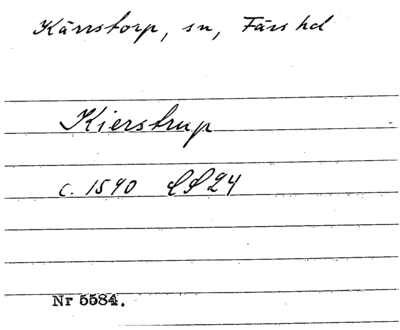 Kärrstorp, sn, Färs hd
Kierstrup
c. 1590 LP 24
Nr 5584.